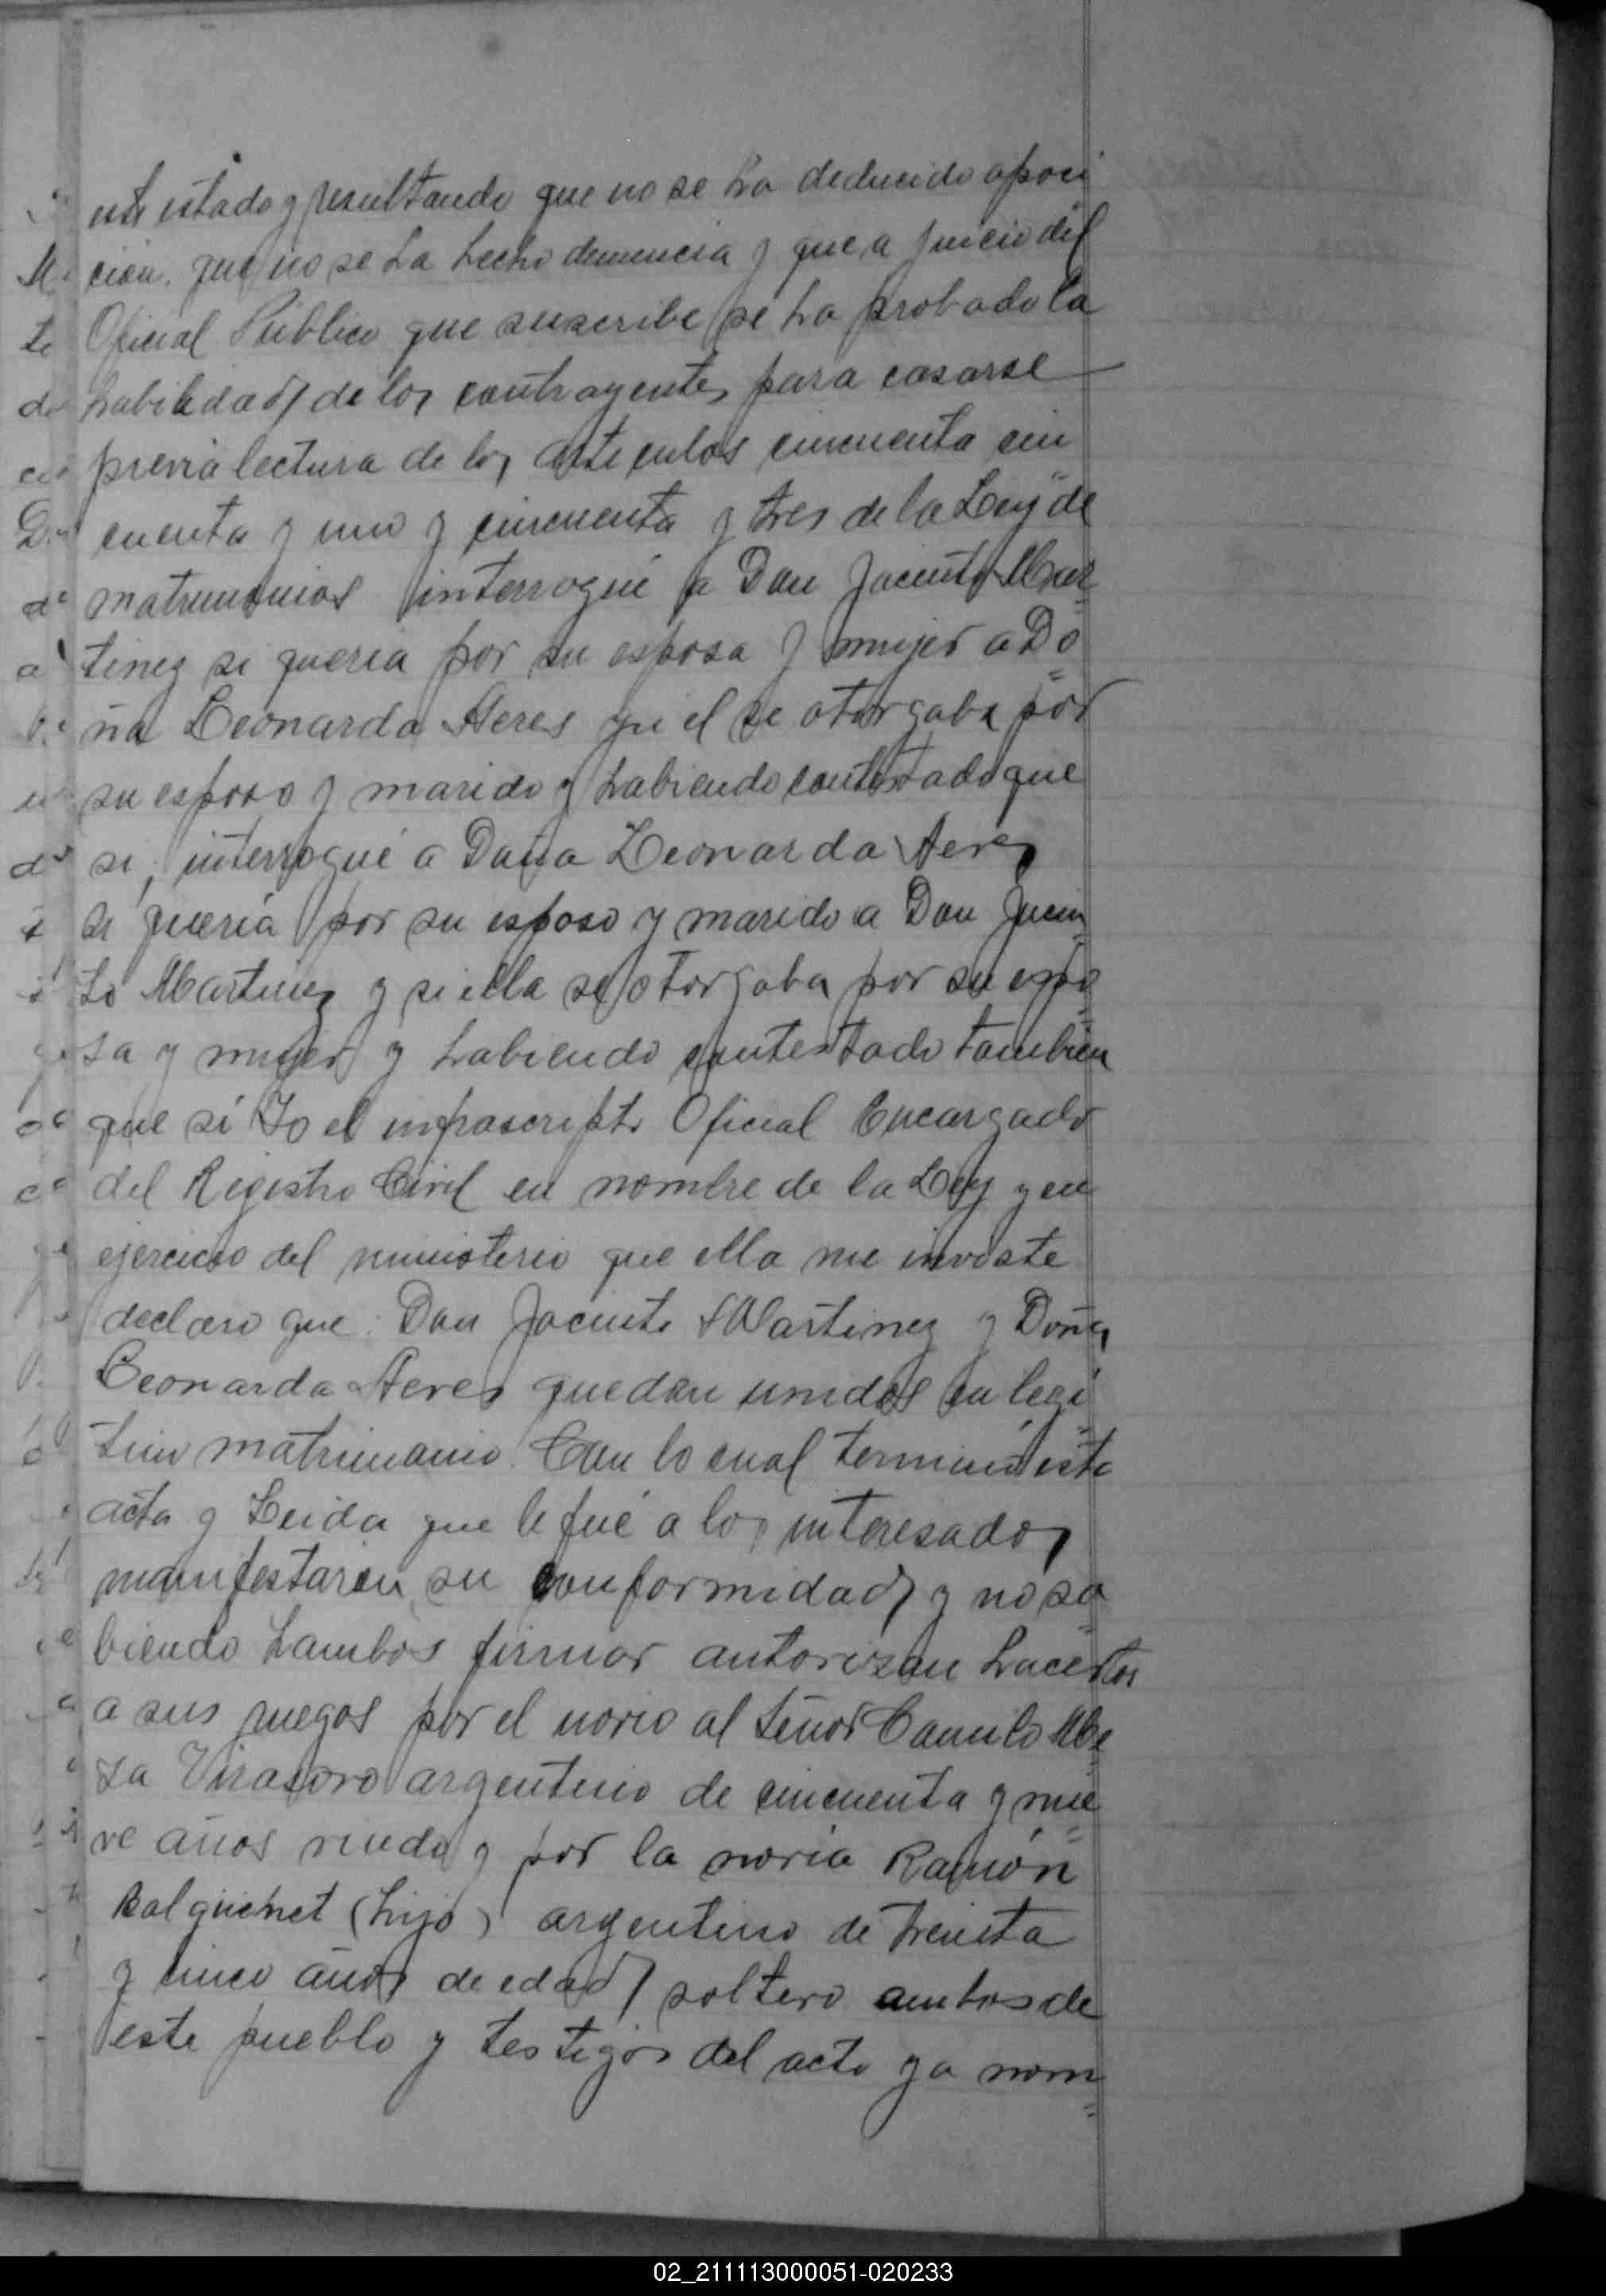 este estado y resultando que no se ha deducido oposi
ción, que no se ha hecho denuncia y que a juicio del
Oficial Público que suscribe se ha probado la
habilidad de los contrayentes para casarse
previa lectura de los articulos cincuenta cin
cuenta y uno y cincuenta y tres de la Ley de
matrimonios interrogué a Don Jacinto Mar=
tinez si queria por su esposa y mujer a Do=
ña Leonarda Aeres y si el se otorgaba por
su esposo y marido y habiendo contestado que
si, interrogué a Doña Leonarda Aeres
si queria por su esposo y marido a Don Jacin=
to Martinez y si ella se otorgaba por su espo=
sa y mujer y habiendo contestado tambien
que sí Yo el infrascripto Oficial Encargado
del Registro Civil en nombre de la Ley y en
ejercicio del ministerio que ella me inviste
declaro que: Don Jacinto Martinez y Doña
Leonarda Aeres quedan unidos en legi=
timo matrimonio. Con lo cual terminó esta
acta y Leida que le fué a los interesados
manifestaron su conformidad y no sa=
biendo hambos firmar autorizan hacerlos
a sus ruegos por el novio al Señor Camilo Me=
za Virasoro argentino de cincuenta y nue=
ve años viudo y por la novia Ramón
Balguchet (hijo) argentino de treinta
y cinco años de edad soltero ambos de
este pueblo y testigos del acto ya nom=
02_211113000051-020233